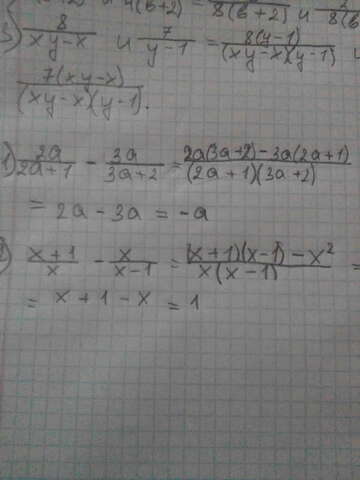 4(b+2) = 8(b+2) и 2
5) 8/(xy-x) и 7/(y-1) = 8(y-1)/((xy-x)(y-1)) и
7(xy-x)/((xy-x)(y-1)).
1) 2a/(2a+1) - 3a/(3a+2) = (2a(3a+2)-3a(2a+1))/((2a+1)(3a+2))
= 2a-3a = -a
(x+1)/x - x/(x-1) = ((x+1)(x-1)-x²)/(x(x-1)) =
= x+1-x = 1